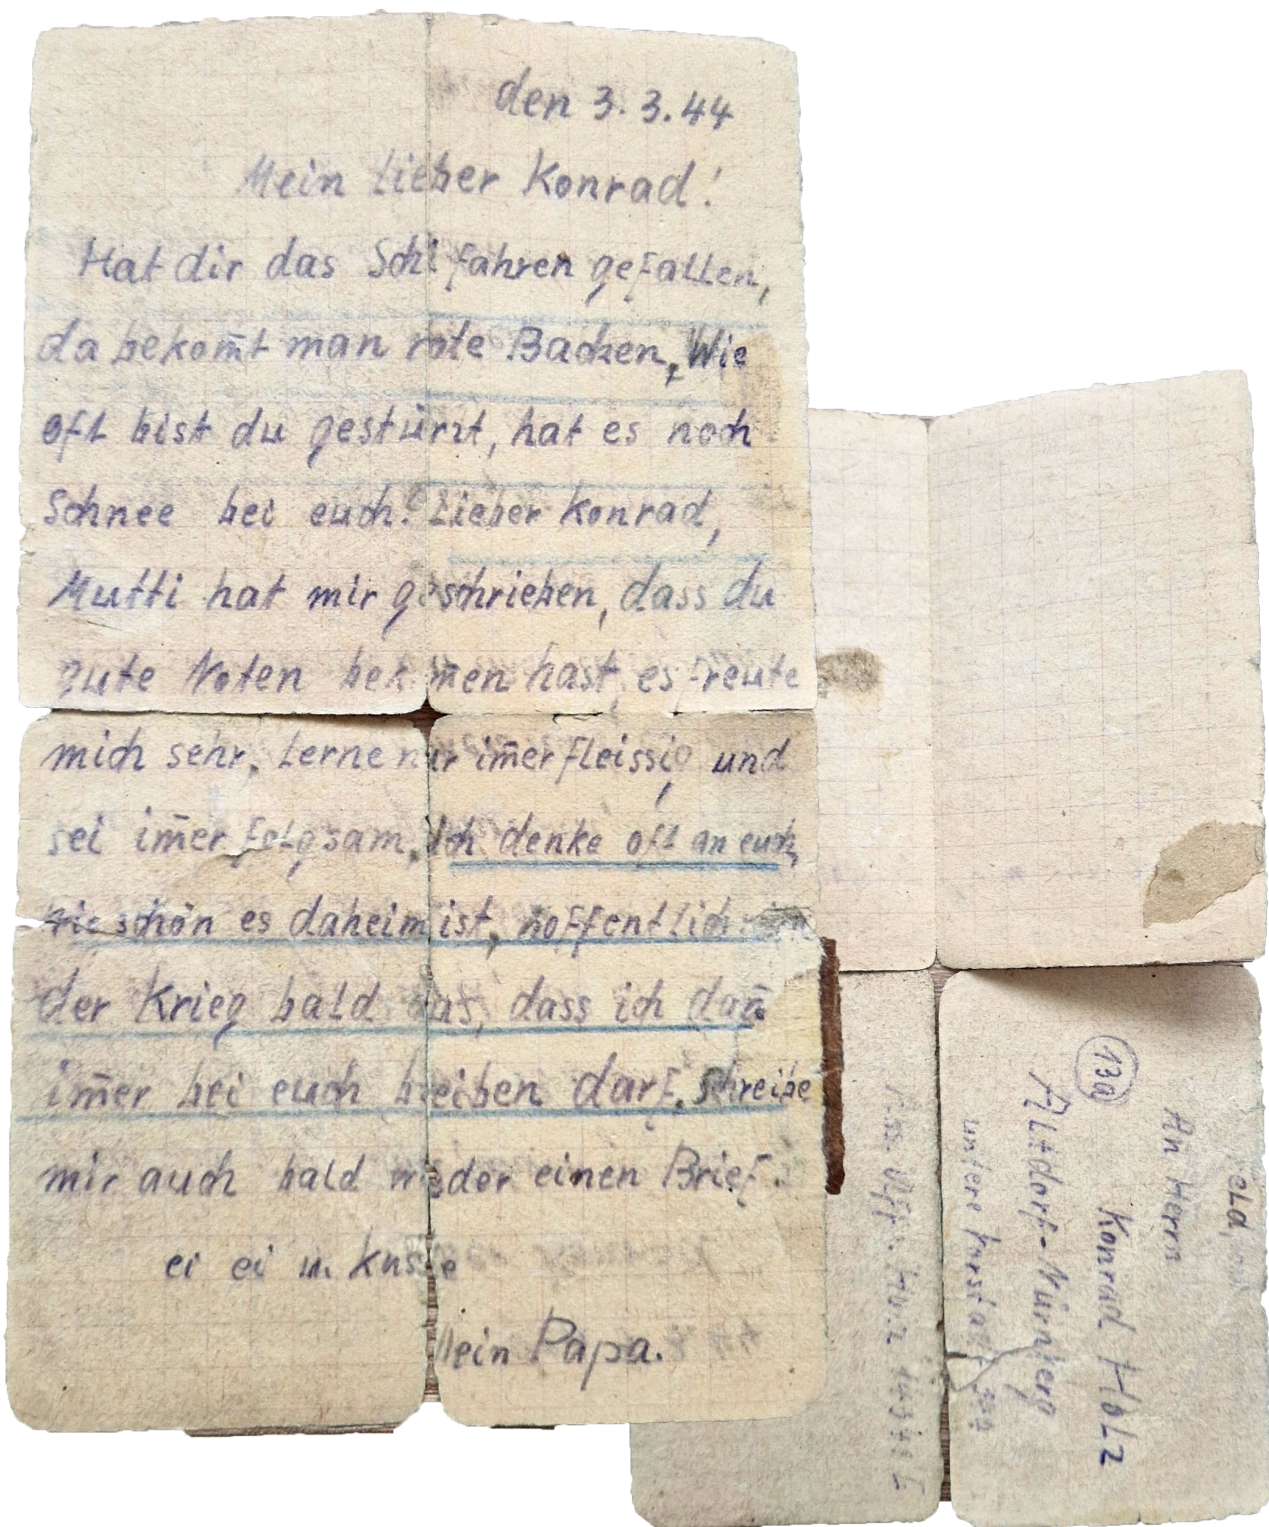 den 3.3.44
Mein Lieber Konrad!
Hat dir das Schifahren gefallen,
da bekom̄t man rote Backen, Wie
oft bist du gestürzt, hat es noch
Schnee bei euch? Lieber Konrad,
Mutti hat mir geschrieben, dass du
gute Noten bekom̄en hast, es freute
mich sehr, Lerne nur im̄er fleissig, und
sei im̄er folgsam, Ich denke oft an euch,
wie schön es daheim ist, hoffentlich
der Krieg bald aus, dass ich dan̄
im̄er bei euch bleiben darf, schreibe
mir auch bald wieder einen Brief.
ei ei u. Küsse
Dein Papa.
An Herrn
Konrad Holz
13a
Altdorf-Nürnberg
untere
Uffz.